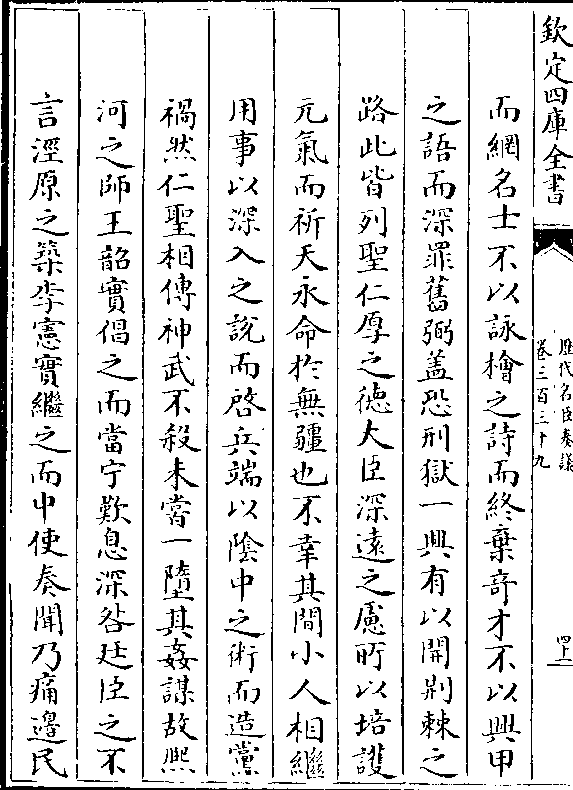 欽定四庫全書
歷代名臣奏議
卷三百三十九
四十一
而網名士不以詠檜之詩而終棄竒才不以興甲
之語而深罪舊弼盖恐刑獄一興有以開荆棘之
路此皆列聖仁厚之徳大臣深遠之慮所以培護
元氣而祈天永命於無疆也不幸其間小人相繼
用事以深入之說而啓兵端以陰中之術而造黨
禍然仁聖相傳神武不殺未嘗一墮其姦謀故熙
河之師王韶實倡之而當宁歎息深咎廷臣之不
言涇原之築李憲實繼之而中使奏聞乃痛邊民